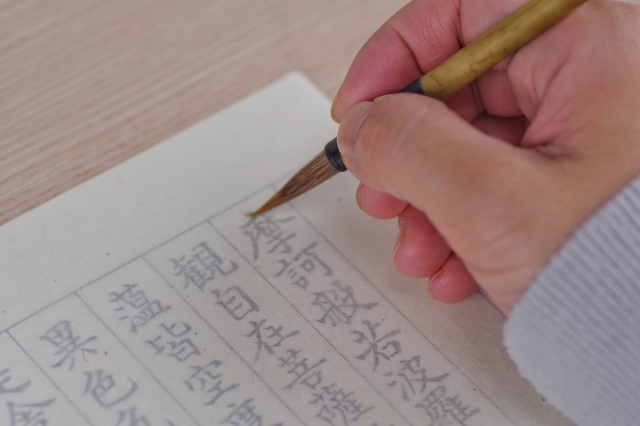 摩訶般若波羅
観自在菩薩
蘊皆空度
異色色
舎